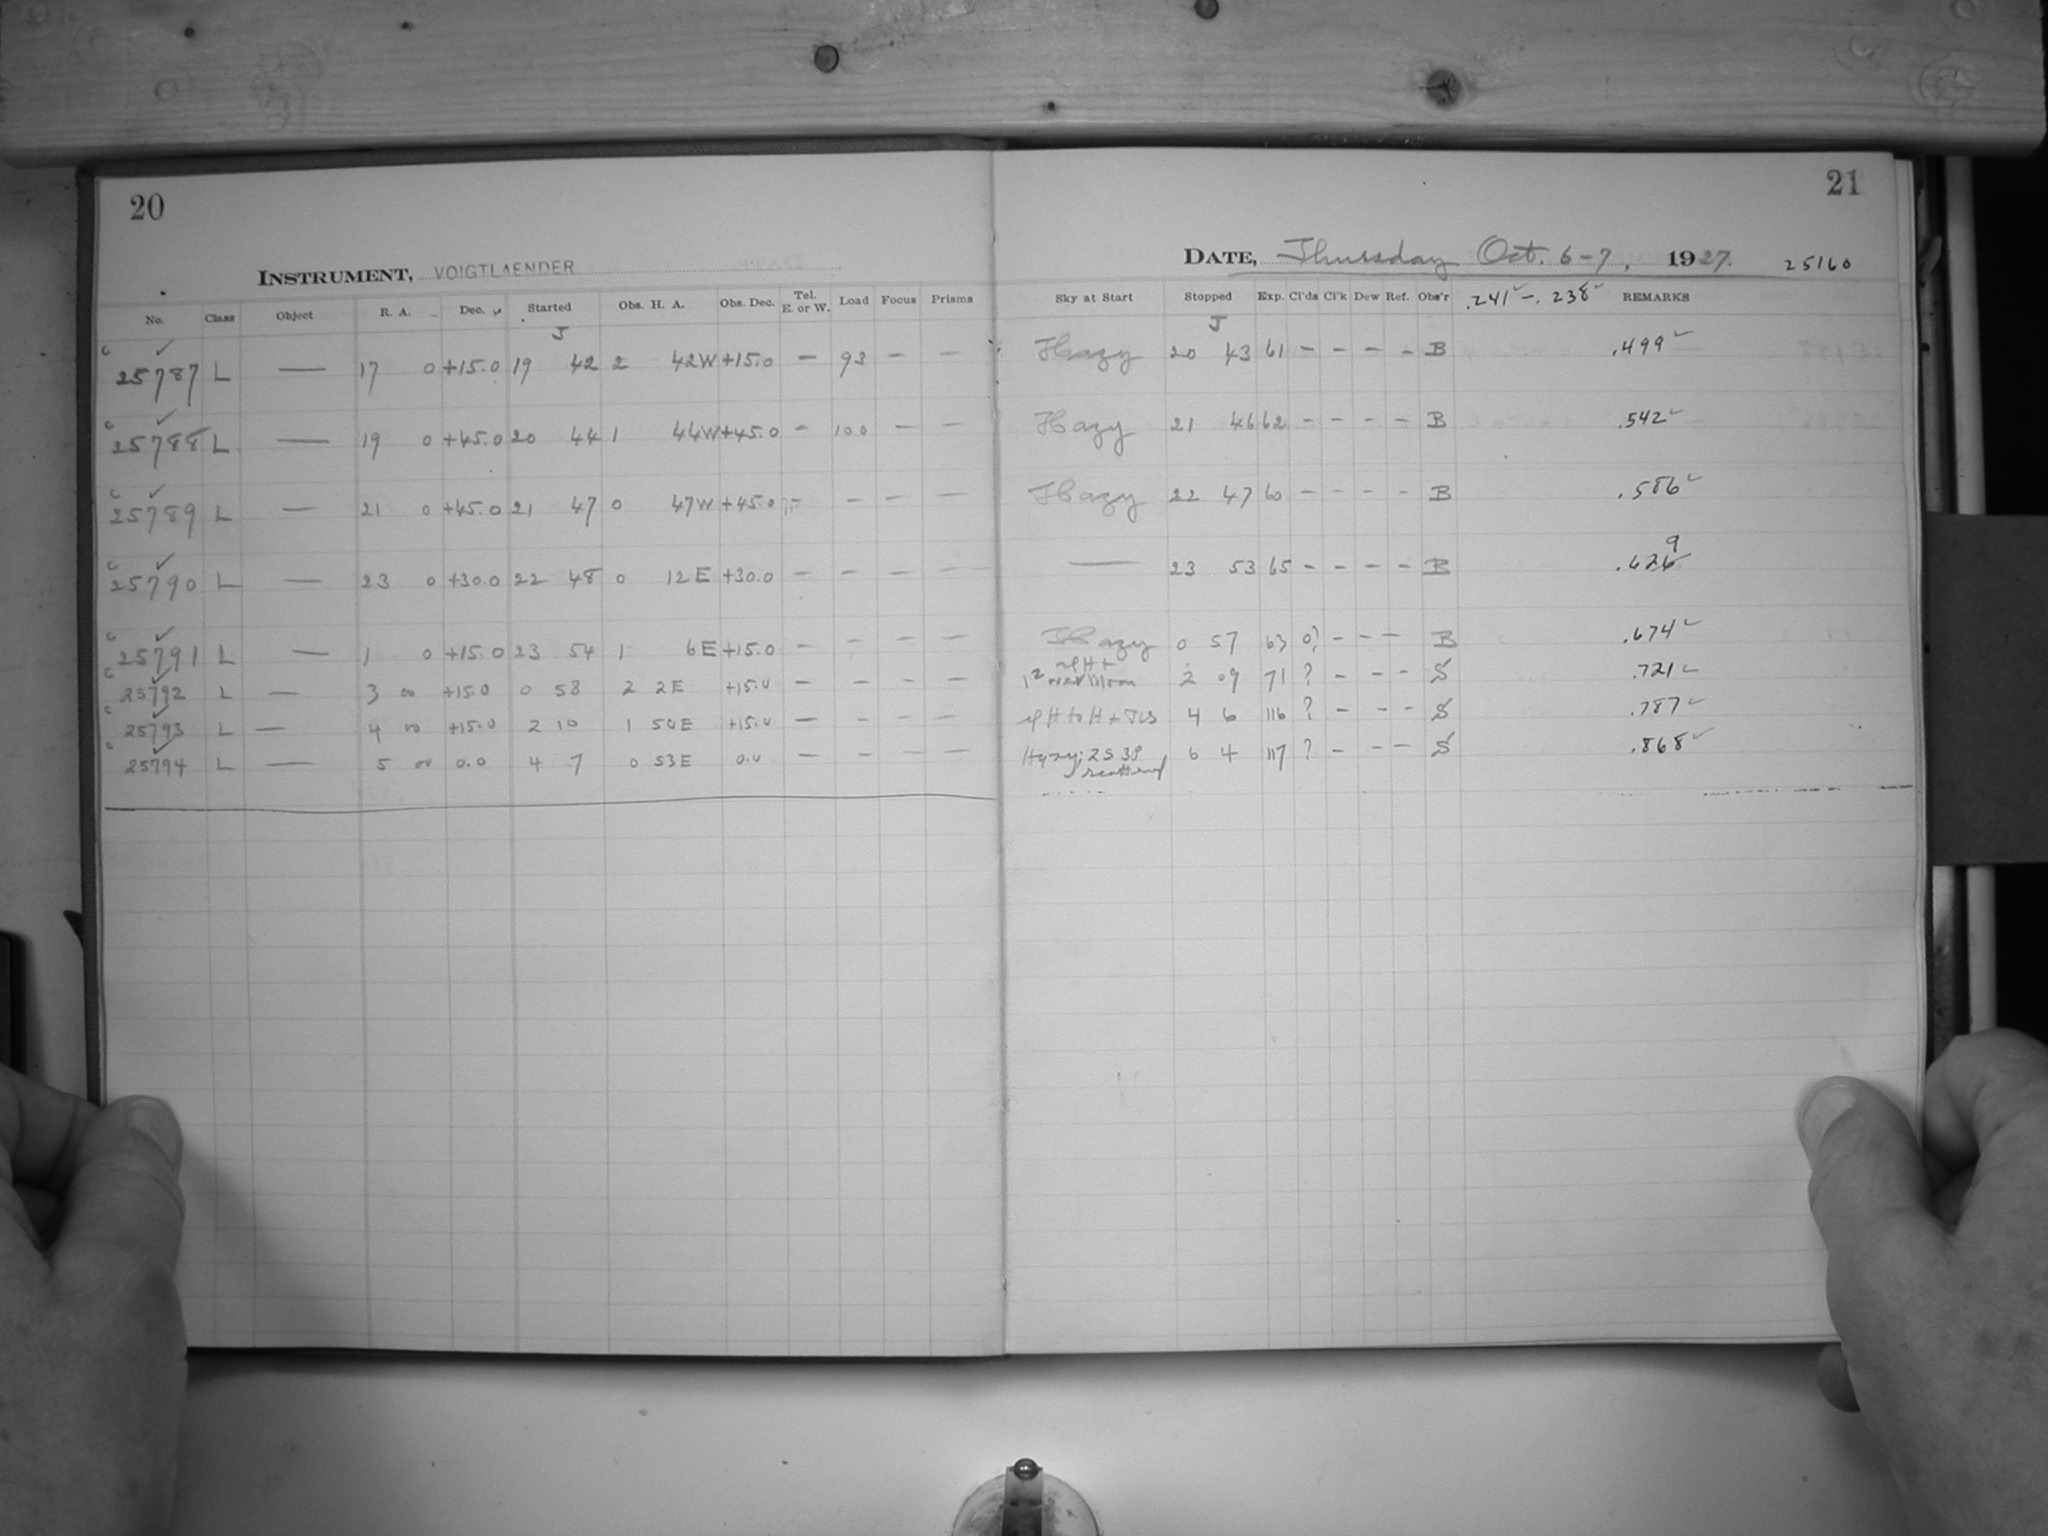 20
INSTRUMENT, VOIGTLAENDER
No. Class Object R. A. Dec. Started Obs. H. A. Obs. Dec. Tel. E. or W. Load Focus Prisms
J
25787 L — 17 0 +15.0 19 42 2 42W +15.0 — 93 — —
25788 L — 19 0 +45.0 20 44 1 44W +45.0 — 100 — —
25789 L — 21 0 +45.0 21 47 0 47W +45.0 — — — —
25790 L — 23 0 +30.0 22 48 0 12E +30.0 — — — —
25791 L — 1 0 +15.0 23 54 1 6E +15.0 — — — —
25792 L — 3 00 +15.0 0 58 2 2E +15.0 — — — —
25793 L — 4 00 +15.0 2 10 1 50E +15.0 — — — —
25794 L — 5 00 0.0 4 7 0 53E 0.0 — — — —
21
DATE, Thursday Oct. 6-7, 1927. 25160
Sky at Start Stopped Exp. Cl'ds Cl'k Dew Ref. Obs'r .241 - .238 REMARKS
J
Hazy 20 43 61 - - - - B .499
Hazy 21 46 62 - - - - B .542
Hazy 22 47 60 - - - - B .586
9
— 23 53 65 - - - - B .626
Hazy 0 57 63 0? - - - B .674
near Moon 2 09 71 ? - - - S .721
H to H + 4 6 116 ? - - - S .787
Hazy; 2S 38 6 4 117 ? - - - S .868